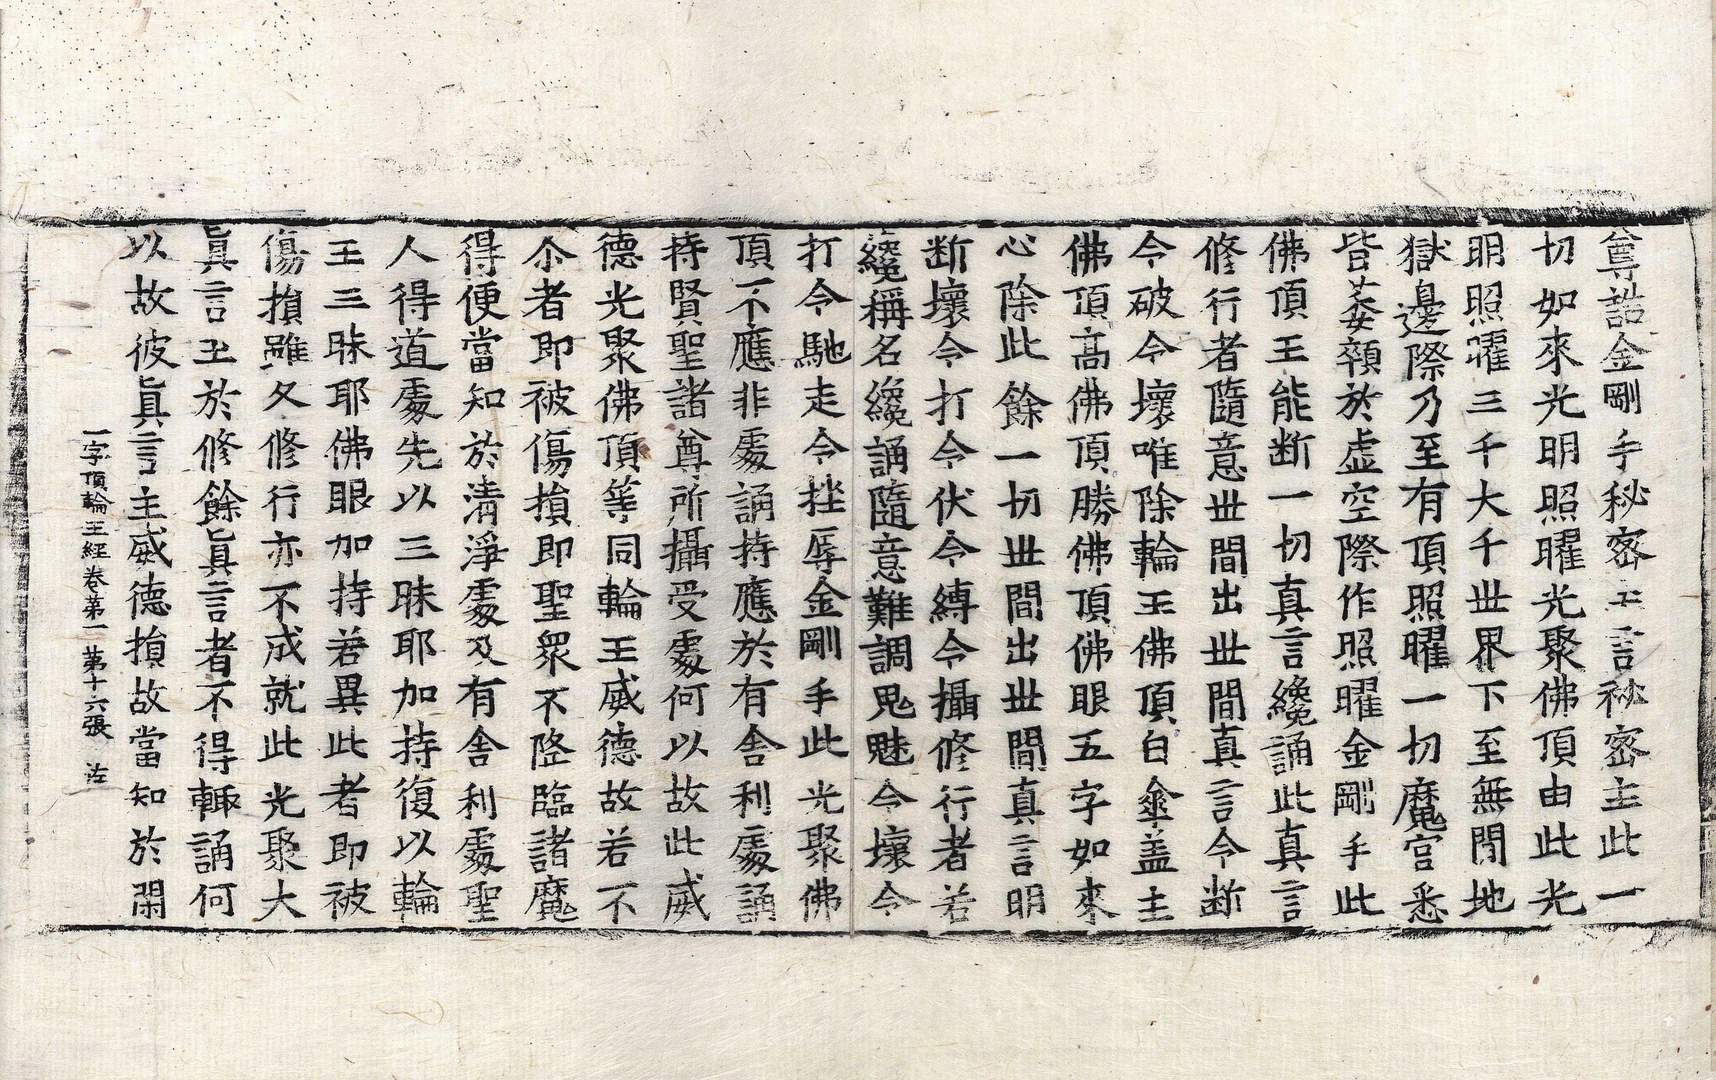 尊誥金剛手秘密主言秘密主此一
切如來光明照曜光聚佛頂由此光
明照曜三千大千世界下至無間地
獄邊際乃至有頂照曜一切魔宮悉
皆萎顇於虛空際作照曜金剛手此
佛頂王能斷一切真言纔誦此真言
修行者隨意世間出世間真言令斷
令破令壞唯除輪王佛頂白傘蓋主
佛頂高佛頂勝佛頂佛眼五字如來
心除此餘一切世間出世間真言明
斷壞令打令伏令縛令攝修行者若
纔稱名纔誦隨意難調鬼魅令壞令
打令馳走令挫辱金剛手此光聚佛
頂不應非處誦持應於有舍利處誦
持賢聖諸尊所攝受處何以故此威
德光聚佛頂等同輪王威德故若不
尒者即被傷損即聖衆不降臨諸魔
得便當知於清淨處及有舍利處聖
人得道處先以三昧耶加持復以輪
王三昧耶佛眼加持若異此者即被
傷損雖久修行亦不成就此光聚大
真言王於修餘真言者不得輙誦何
以故彼真言主威德損故當知於閑
一字頂輪王經卷第一　第十六張